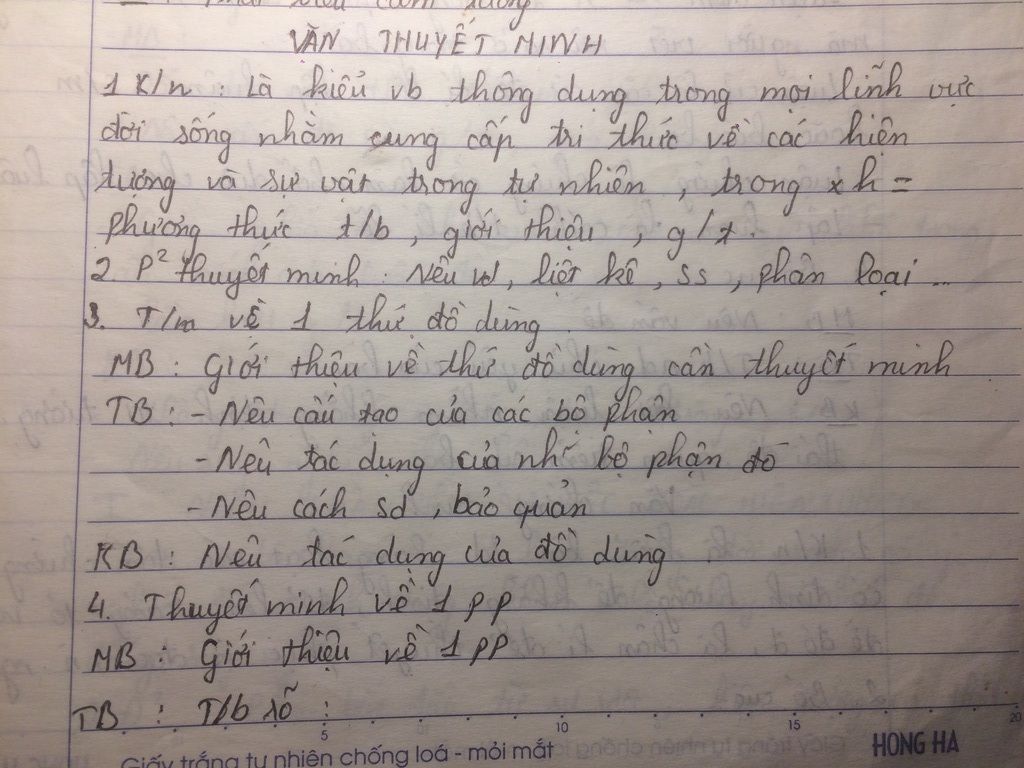 VĂN THUYẾT MINH
1 K/n : Là kiểu vb thông dụng trong mọi lĩnh vực
đời sống nhằm cung cấp tri thức về các hiện
tượng và sự vật trong tự nhiên, trong xh =
phương thức t/b, giới thiệu, g/t.
2. P² thuyết minh : Nêu vd, liệt kê, ss, phân loại ...
3. T/m về 1 thứ đồ dùng.
MB : Giới thiệu về thứ đồ dùng cần thuyết minh
TB : - Nêu cấu tạo của các bộ phận
- Nêu tác dụng của nh~ bộ phận đó
- Nêu cách sd, bảo quản
KB : Nêu tác dụng của đồ dùng
4. Thuyết minh về 1 pp
MB : Giới thiệu về 1 pp
TB : T/b rõ :
5 10 15 20
Giấy trắng tự nhiên chống loá - mỏi mắt HONG HA